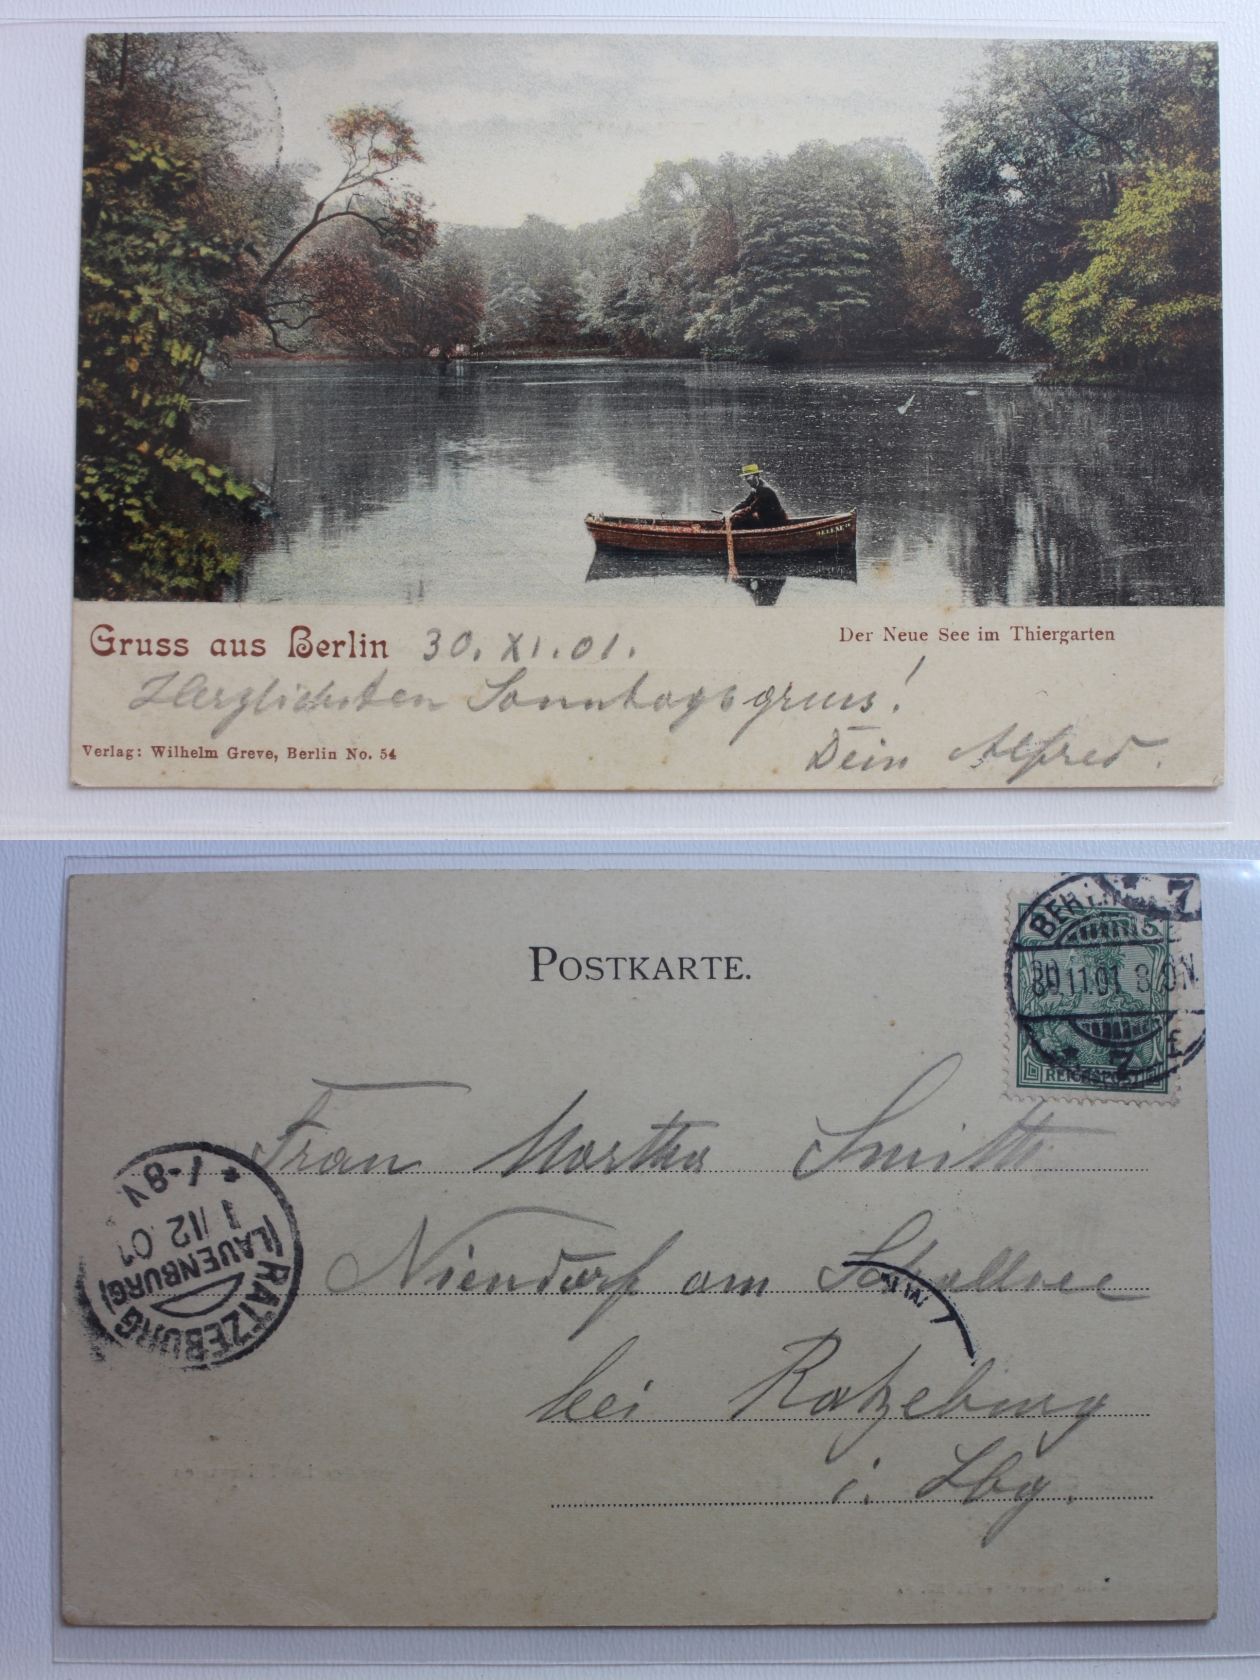 HELENE
Gruss aus Berlin 30. XI. 01.
Der Neue See im Thiergarten
Herzlichsten Sonntagsgruss!
Verlag: Wilhelm Greve, Berlin No. 54
Dein Alfred.
POSTKARTE.
BERLIN
5
30.11.01 8-9N
* 7 E
REICHSPOST
Frau Martha Smith
Niendorf am Schallsee
bei Ratzeburg
i. Lbg.
RATZEBURG
(LAUENBURG)
1/12.01
* 7-8V